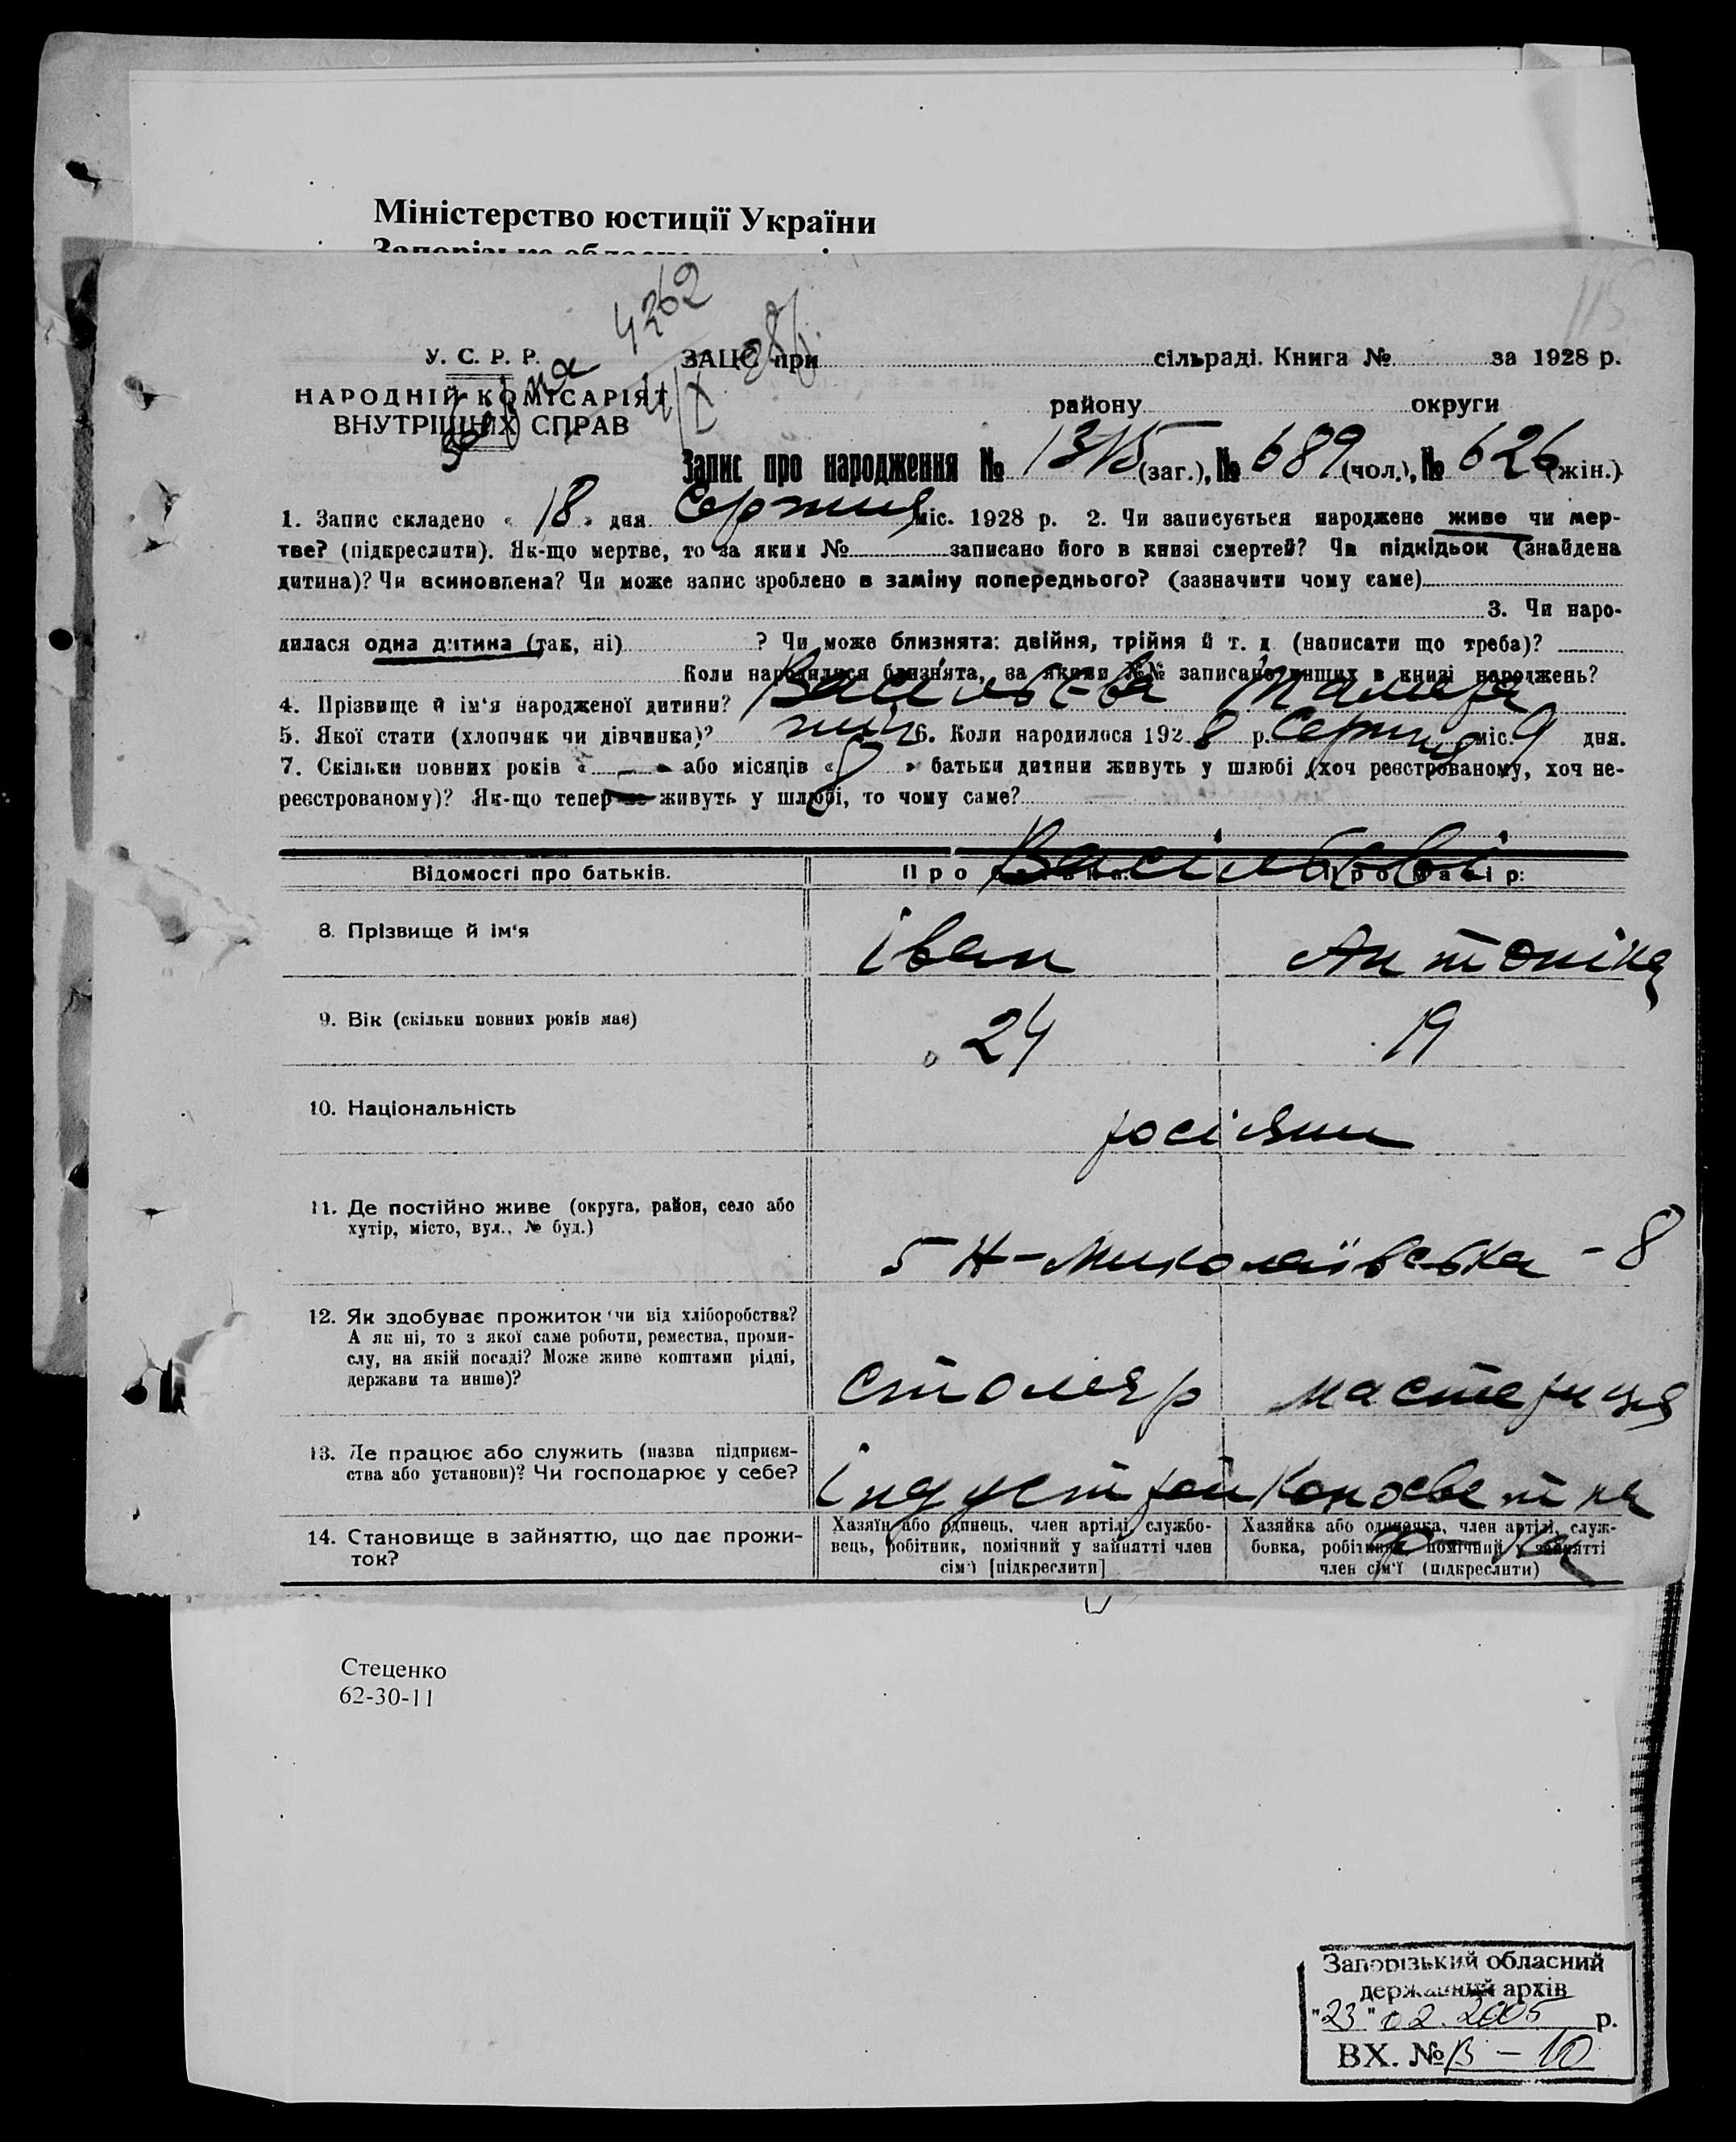 Міністерство юстиції України
115
4262
У. С. Р. Р.
НАРОДНІЙ КОМІСАРІЯТ
ВНУТРІШНІХ СПРАВ
ЗАЦС при сільраді. Книга № за 1928 р.
району округи
Запис про народження № 1315 (заг.), № 689 (чол.), № 626 (жін.)
1. Запис складено « 18 » дня Серпня міс. 1928 р. 2. Чи записується народжене живе чи мер-
тве? (підкреслити). Як-що мертве, то за яким № записано його в книзі смертей? Чи підкідьок (знайдена
дитина)? Чи всиновлена? Чи може запис зроблено в заміну попереднього? (зазначити чому саме)
3. Чи наро-
дилася одна дитина (так, ні) ? Чи може близнята: двійня, трійня й т. д (написати що треба)?
Коли народилися близнята, за якими №№ записано инших в книзі народжень?
4. Прізвище й ім'я народженої дитини? Васількова Тамара
5. Якої стати (хлопчик чи дівчинка)? 6. Коли народилося 192 8 р. Серпня міс. 9 дня.
7. Скільки повних років « — » або місяців « » батьки дитини живуть у шлюбі (хоч реєстрованому, хоч не-
реєстрованому)? Як-що тепер не живуть у шлюбі, то чому саме?
Відомості про батьків. Про батька: Про матір:
Васількові
8. Прізвище й ім'я Іван Антоніна
9. Вік (скільки повних років має) 24 19
10. Національність росіяни
11. Де постійно живе (округа, район, село або
хутір, місто, вул., № буд.) 5 Н-Миколаївська - 8
12. Як здобуває прожиток чи від хліборобства?
А як ні, то з якої саме роботи, ремества, проми-
слу, на якій посаді? Може живе коштами рідні,
держави та инше)? столяр мастериця
13. Де працює або служить (назва підприєм-
ства або установи)? Чи господарює у себе? Індустрой
14. Становище в зайняттю, що дає прожи-
ток?
Хазяїн або одинець, член артілі, службо-
вець, робітник, помічний у зайнятті член
сім'ї [підкреслити]
Хазяйка або одиначка, член артілі, служ-
бовка, робітниця, помічний у зайнятті
член сім'ї (підкреслити)
Стеценко
62-30-11
Запорізький обласний
державний архів
"23" 02. 2005 р.
ВХ. № В - 10